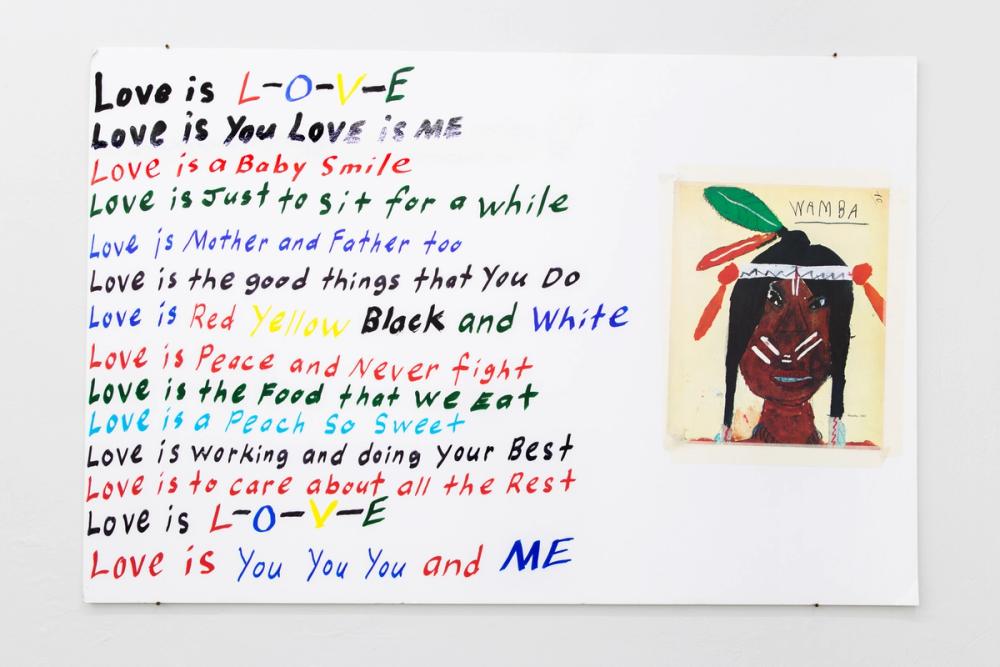 Love is L-O-V-E
Love is You Love is ME
Love is a Baby Smile
Love is Just to sit for a while
Love is Mother and Father too
Love is the good things that You Do
Love is Red Yellow Black and White
Love is Peace and Never fight
Love is the Food that We Eat
Love is a Peach So Sweet
Love is working and doing Your Best
Love is to care about all the Rest
Love is L-O-V-E
Love is You You You and ME
WAMBA